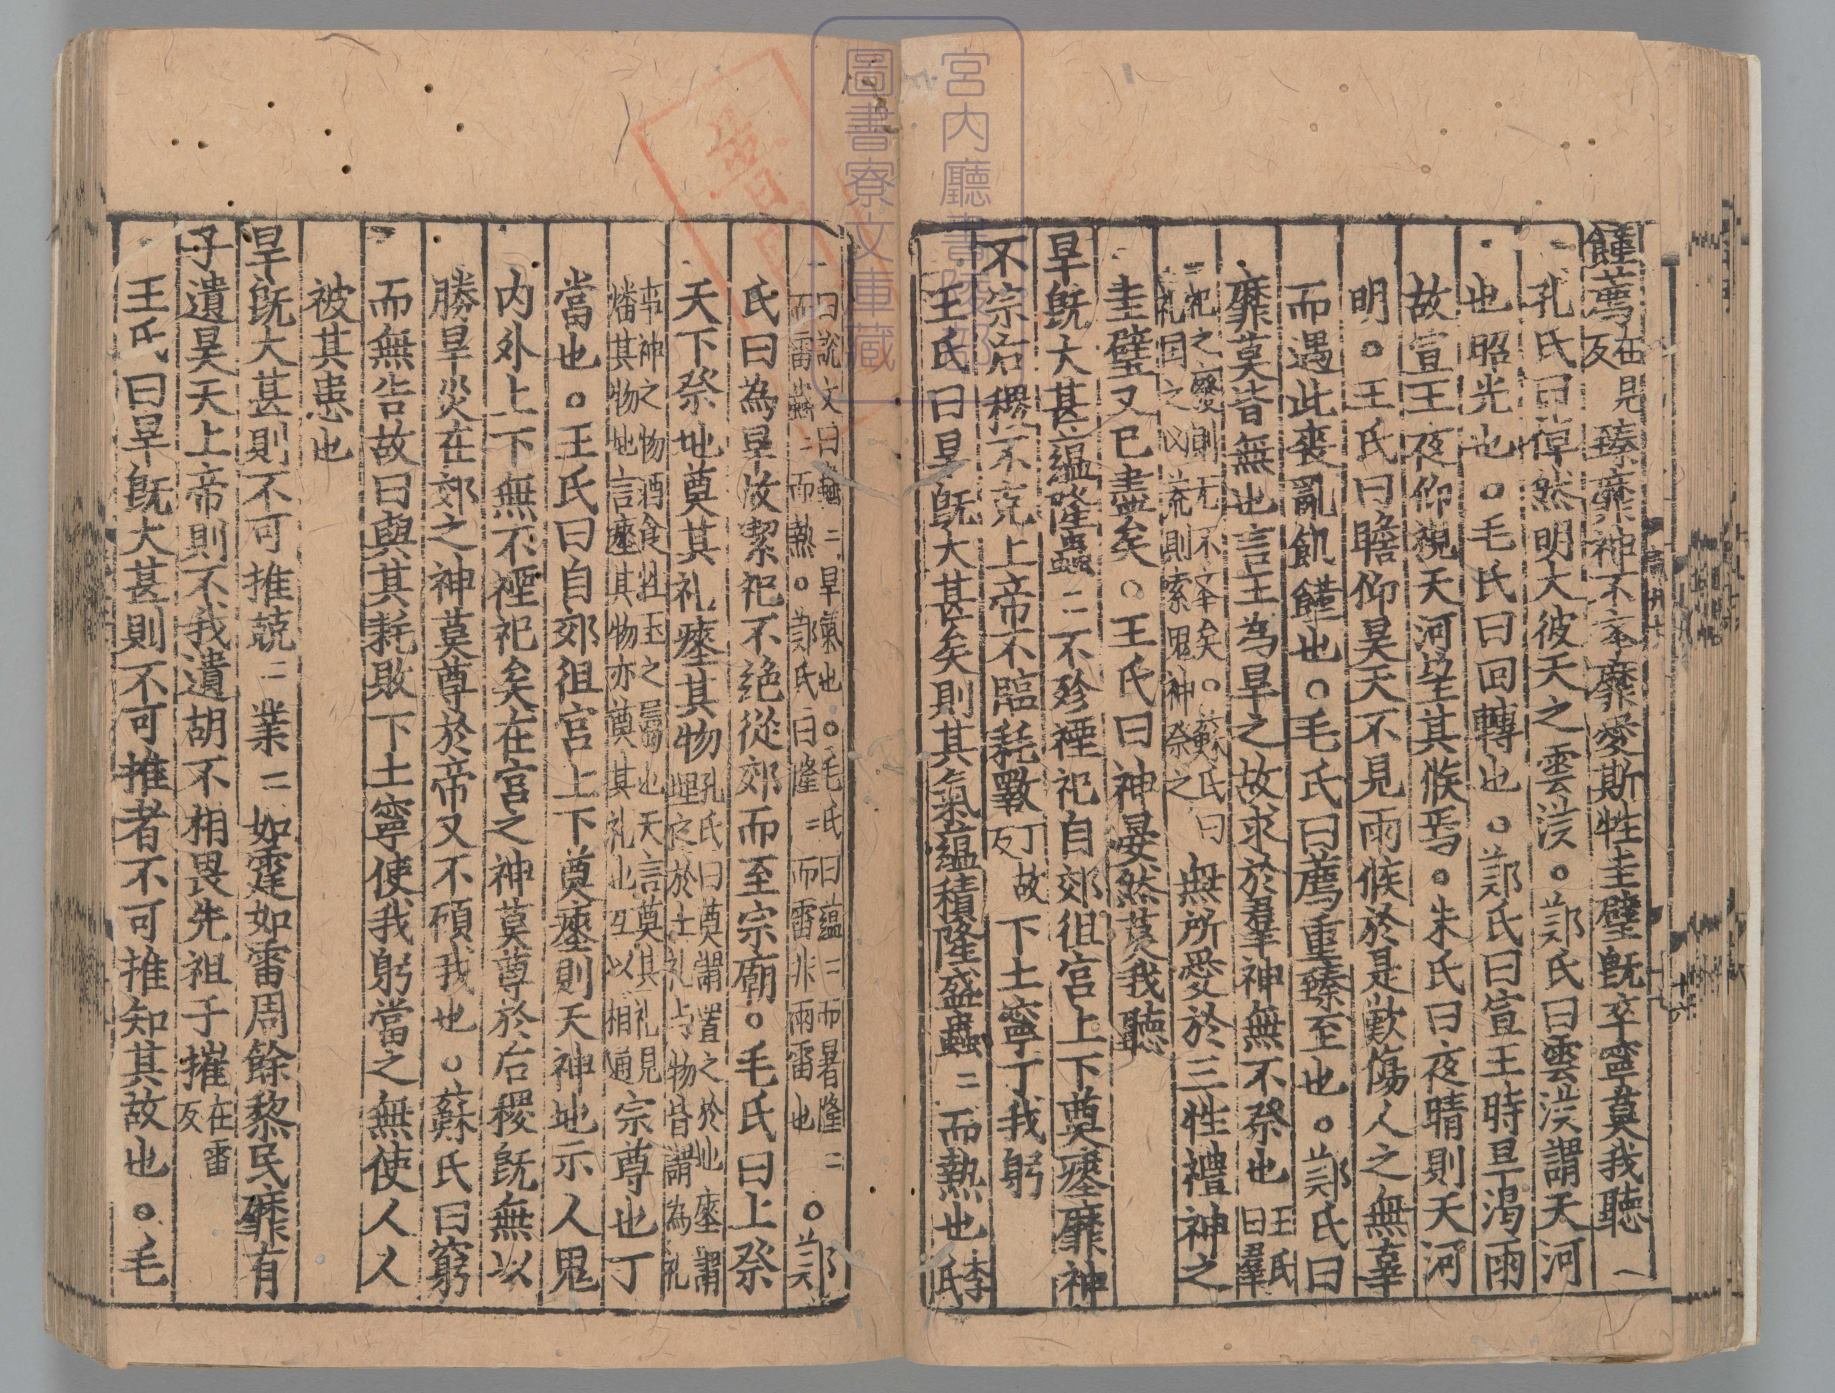 饉薦在見反臻靡神不舉靡愛斯牲圭璧既卒寧莫我聽
孔氏曰倬然明大彼天之雲漢○鄭氏曰雲漢謂天河
也昭光也○毛氏曰回轉也○鄭氏曰宣王時旱渴雨
故宣王夜仰視天河望其候焉○朱氏曰夜晴則天河
明○王氏曰瞻仰昊天不見雨候於是歎傷人之無辜
而遇此喪亂飢饉也○毛氏曰薦重臻至也○鄭氏曰
靡莫皆無也言王為旱之故求於羣神無不祭也王氏曰羣
祀之廢則无不举矣○蘇氏曰
礼国之凶荒則索鬼神祭之無所愛於三牲禮神之
圭璧又已盡矣○王氏曰神晏然莫我聽
旱既大甚蘊隆蟲〻不殄禋祀自郊徂宮上下奠瘞靡神
不宗后稷不克上帝不臨耗斁丁故反下土寧丁我躬
王氏曰旱既大甚矣則其氣蘊積隆盛蟲〻而熱也李氏
曰說文曰蟲〻旱氣也○毛氏曰蘊〻而暑隆〻
而雷蟲〻而熱○鄭氏曰隆〻而雷非雨雷也○鄭
氏曰為旱故潔祀不絕從郊而至宗廟○毛氏曰上祭
天下祭地奠其礼瘞其物孔氏曰奠謂置之於地瘞謂
堙之於土礼与物皆謂為礼
事神之物酒食牲玉之屬也天言奠其礼見
燔其物地言瘞其物亦奠其礼也互以相通宗尊也丁
當也○王氏曰自郊徂宮上下奠瘞則天神地示人鬼
内外上下無不禋祀矣在宮之神莫尊於后稷既無以
勝旱災在郊之神莫尊於帝又不顧我也○蘇氏曰窮
而無告故曰與其耗斁下土寧使我躬當之無使人人
被其患也
旱既大甚則不可推兢〻業〻如霆如雷周餘黎民靡有
孑遺昊天上帝則不我遺胡不相畏先祖于摧在雷反
王氏曰旱既大甚則不可推者不可推知其故也○毛
宮内廳書陵部
圖書寮文庫藏